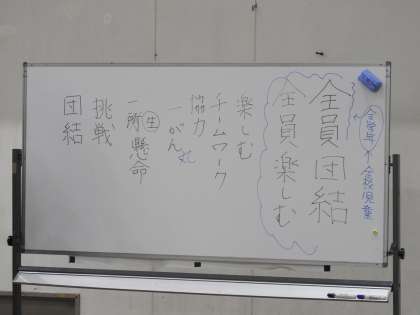 全員団結
全員楽しむ
楽しむ
チームワーク
協力
一がん
一所懸命
生
挑戦
団結